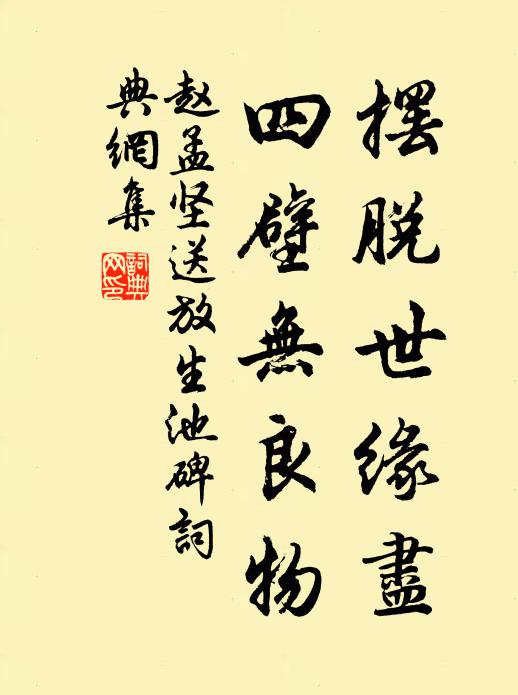 擺脫世緣盡
四壁無良物
赵孟坚送放生池碑詞
典網集
詞典網印